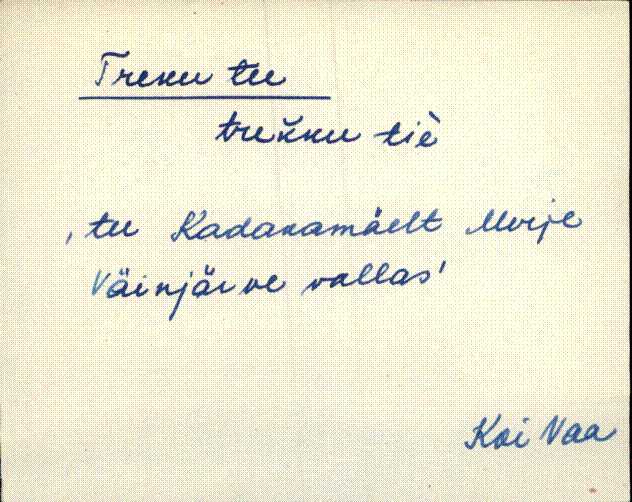 Treku tee
trekku tiè
‚tee Kadakamäelt Merje
Väinjärve vallas'
Koi Vaa